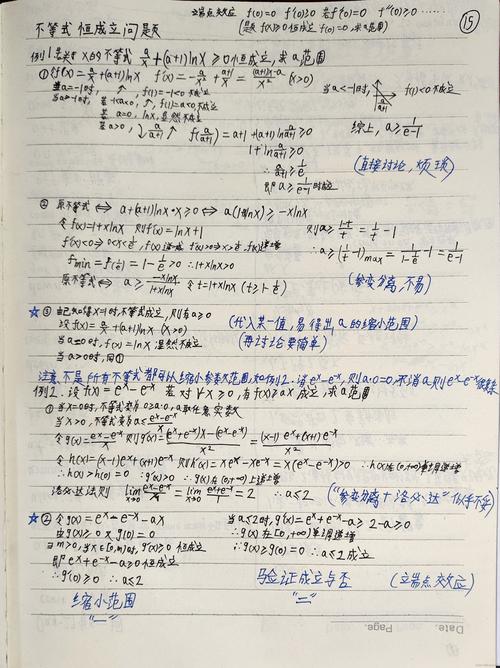 不等式恒成立问题
立端点效应 f(0)=0 f'(0)≥0 若f'(0)=0 f''(0)≥0 ……
(题 f(x)≥0恒成立 f(0)=0,求a范围)
15
例1 若关于x的不等式 a/x+(a+1)lnx≥0恒成立,求a范围
① 令f(x)=a/x+(a+1)lnx f'(x)=-a/x²+(a+1)/x=((a+1)x-a)/x² (x>0)
当a=-1时, ↑, f(1)=-1<0 不成立
当a>-1时, 若-1<a<0, ↑, f(1)=a<0不成立
若 a=0, lnx, 显然不成立
若a>0, a/(a+1) f(a/(a+1))=a+1+(a+1)ln a/(a+1)≥0
1+ln a/(a+1)≥0
∴ a/(a+1)≥1/e
即 a≥1/(e-1)时成立
当a<-1时, a/(a+1) f(1)<0不成立
综上, a≥1/(e-1)
(直接讨论,烦琐)
② 原不等式⟺ a+(a+1)lnx·x≥0 ⟺ a(1+xlnx)≥-xlnx
令 f(x)=1+xlnx 则f'(x)=lnx+1
f'(x)<0⇒0<x<1/e, f(x)递减 f'(x)>0⇒x>1/e, f(x)递增
fmin=f(1/e)=1-1/e>0 ∴1+xlnx>0
原不等式⟺ a≥-xlnx/(1+xlnx) 令 t=1+xlnx (t≥1-1/e)
则a≥(1-t)/t=1/t-1
∴a≥(1/t-1)max=1/(1-1/e)-1=1/(e-1)
(参变分离,不易)
☆③ 由已知得x=1时,不等式成立,则有a≥0
设f(x)=a/x+(a+1)lnx (x>0)
当a=0时, f(x)=lnx 显然不成立
当a>0时,同①
(代入某一值,易得出a的缩小范围)
(再讨论更简单)
注意,不是所有不等式都可以缩小参数范围,如例2. 诺e^x-e^-x,则a·0=0,不消a,则e^x-e^-x
例2. 设f(x)=e^x-e^-x 若对∀x≥0,有f(x)≥ax成立,求a范围
① 当x=0时,不等式变为0≥a·0,a取任意实数
当x>0,不等式变为a≤(e^x-e^-x)/x
令g(x)=(e^x-e^-x)/x 则g'(x)=((e^x+e^-x)x-(e^x-e^-x))/x²=((x-1)e^x+(x+1)e^-x)/x²
令h(x)=(x-1)e^x+(x+1)e^-x 则h'(x)=xe^x-xe^-x=x(e^x-e^-x)>0 ∴h(x)在(0,+∞)单调递增
∴h(x)>h(0)=0 ∴g'(x)>0 ∴g(x)在(0,+∞)上递增
洛必达法则 lim x→0 (e^x-e^-x)/x=lim x→0 (e^x+e^-x)/1=2 ∴a≤2 ("参变分离+洛必达"似乎不妥)
☆② 令g(x)=e^x-e^-x-ax
由g(x)≥0 又g(0)=0
∃m>0, 当x∈[0,m)时, g'(x)≥0 恒成立
即e^x+e^-x-a≥0恒成立
∴g'(0)≥0 ∴a≤2
缩小范围
"一"
当a≤2时, g'(x)=e^x+e^-x-a≥2-a≥0
∴g(x)在[0,+∞)单调递增
∴g(x)≥g(0)=0 ∴a≤2成立
验证成立与否
"二"
(立端点效应)
Date. Page.